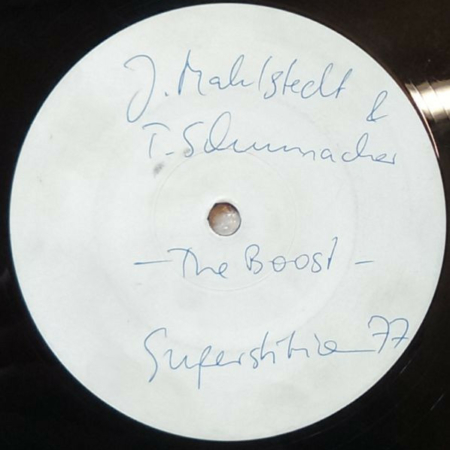 J. Mahlstedt
&
T. Schumacher
- The Boost -
Superstition 77